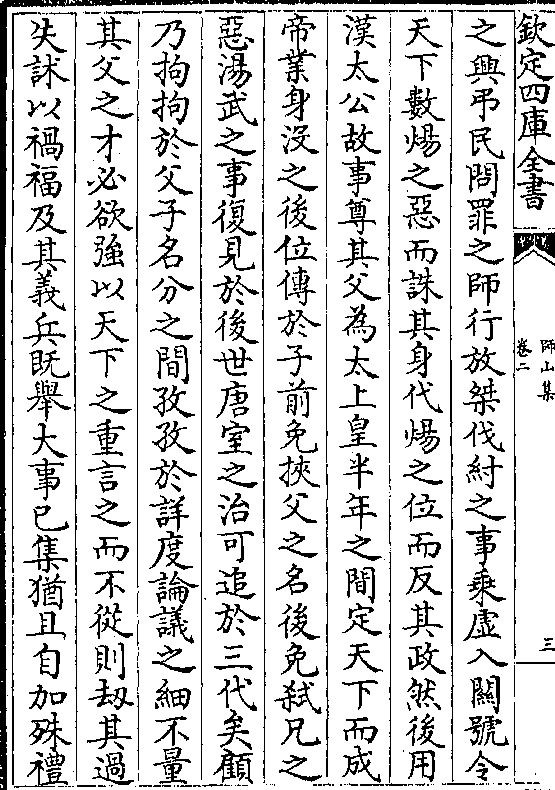 欽定四庫全書
師山集
卷二
三
之興弔民問罪之師行放桀伐紂之事乘虛入關號令
天下數煬之惡而誅其身代煬之位而反其政然後用
漢太公故事尊其父為太上皇半年之間定天下而成
帝業身沒之後位傳於子前免挾父之名後免弒兄之
惡湯武之事復見於後世唐室之治可追於三代矣顧
乃拘拘於父子名分之間孜孜於詳度論議之細不量
其父之才必欲強以天下之重言之而不從則刼其過
失訹以禍福及其義兵既舉大事已集猶且自加殊禮